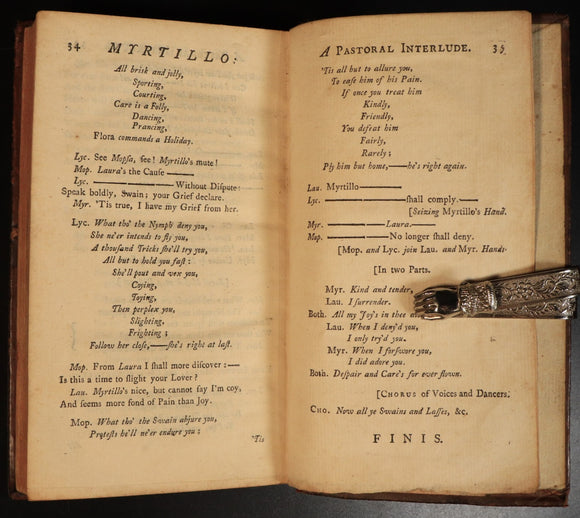 34 MYRTILLO:
All brisk and jolly,
Sporting,
Courting,
Care is a Folly,
Dancing,
Prancing,
Flora commands a Holiday.
Lyc. See Mopsa, ſee! Myrtillo's mute!
Mop. Laura's the Cause ———
Lyc. ——— Without Dispute:
Speak boldly, Swain; your Grief declare.
Myr. 'Tis true, I have my Grief from her.
Lyc. What tho' the Nymph deny you,
She ne'er intends to fly you,
A thouſand Tricks ſhe'll try you,
All but to hold you faſt:
She'll pout and vex you,
Coying,
Toying,
Then perplex you,
Slighting,
Frighting;
Follow her cloſe,—ſhe's right at laſt.
Mop. From Laura I ſhall more diſcover:—
Is this a time to ſlight your Lover?
Lau. Myrtillo's nice, but cannot ſay I'm coy,
And ſeems more fond of Pain than Joy.
Mop. What tho' the Swain abjure you,
Proteſts he'll ne'er endure you;
'Tis
A PASTORAL INTERLUDE. 35
'Tis all but to allure you,
To eaſe him of his Pain.
If once you treat him
Kindly,
Friendly,
You defeat him
Fairly,
Rarely;
Ply him but home,—he's right again.
Lau. Myrtillo———
Lyc. ——— ſhall comply.—
[Seizing Myrtillo's Hand.
Myr. ——— Laura.—
Mop. ——— No longer ſhall deny.
[Mop. and Lyc. join Lau. and Myr. Hands.
[In two Parts.
Myr. Kind and tender,
Lau. I ſurrender.
Both. All my Joy's in thee
Lau. When I deny'd you,
I only try'd you.
Myr. When I forſwore you,
I did adore you.
Both. Deſpair and Care's for ever flown.
[CHORUS of Voices and Dancers.
Cho. Now all ye Swains and Laſſes, &c.
FINIS.